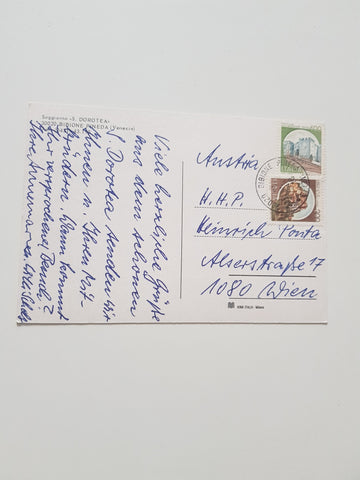 Soggiorno «S. DOROTEA»
30020 BIBIONE PINEDA (Venezia)
Viele herzliche Grüße
aus dem schönen
S. Dorotea senden wir
Ihnen u. Ihren Mit-
brüdern. Wann kommt
Ihr versprochener Besuch?
Ihre Annemarie
Austria
H.H.P.
Heinrich Ponta
Alserstraße 17
1080 Wien
BIBIONE